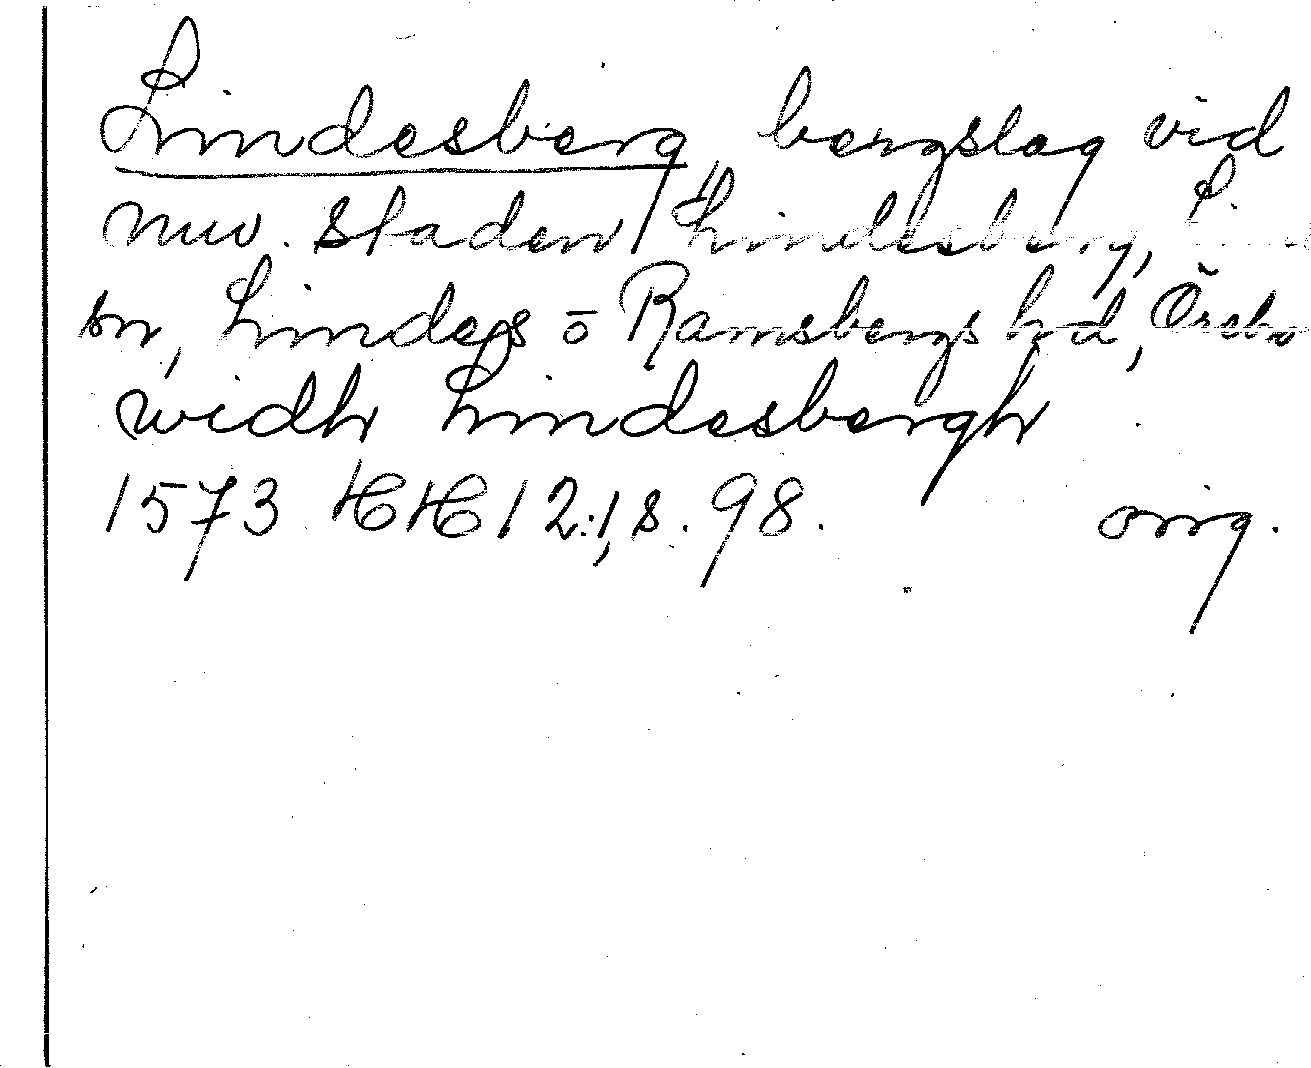 Lindesberg, bergslag vid
nuv. staden Lindesberg,
sn, Lindes o Ramsbergs hd, Örebro
widh Lindesbergh
1573 HH 12:1, s. 98. orig.